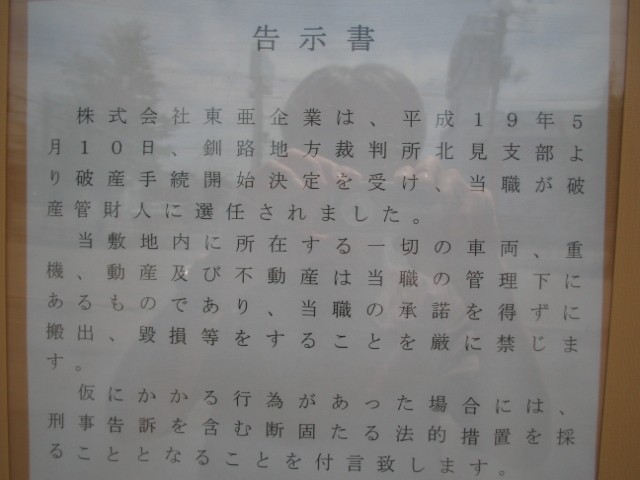 告示書
株式会社東亜企業は、平成19年5
月10日、釧路地方裁判所北見支部よ
り破産手続開始決定を受け、当職が破
産管財人に選任されました。
当敷地内に所在する一切の車両、重
機、動産及び不動産は当職の管理下に
あるものであり、当職の承諾を得ずに
搬出、毀損等をすることを厳に禁じま
す。
仮にかかる行為があった場合には、
刑事告訴を含む断固たる法的措置を採
ることとなることを付言致します。